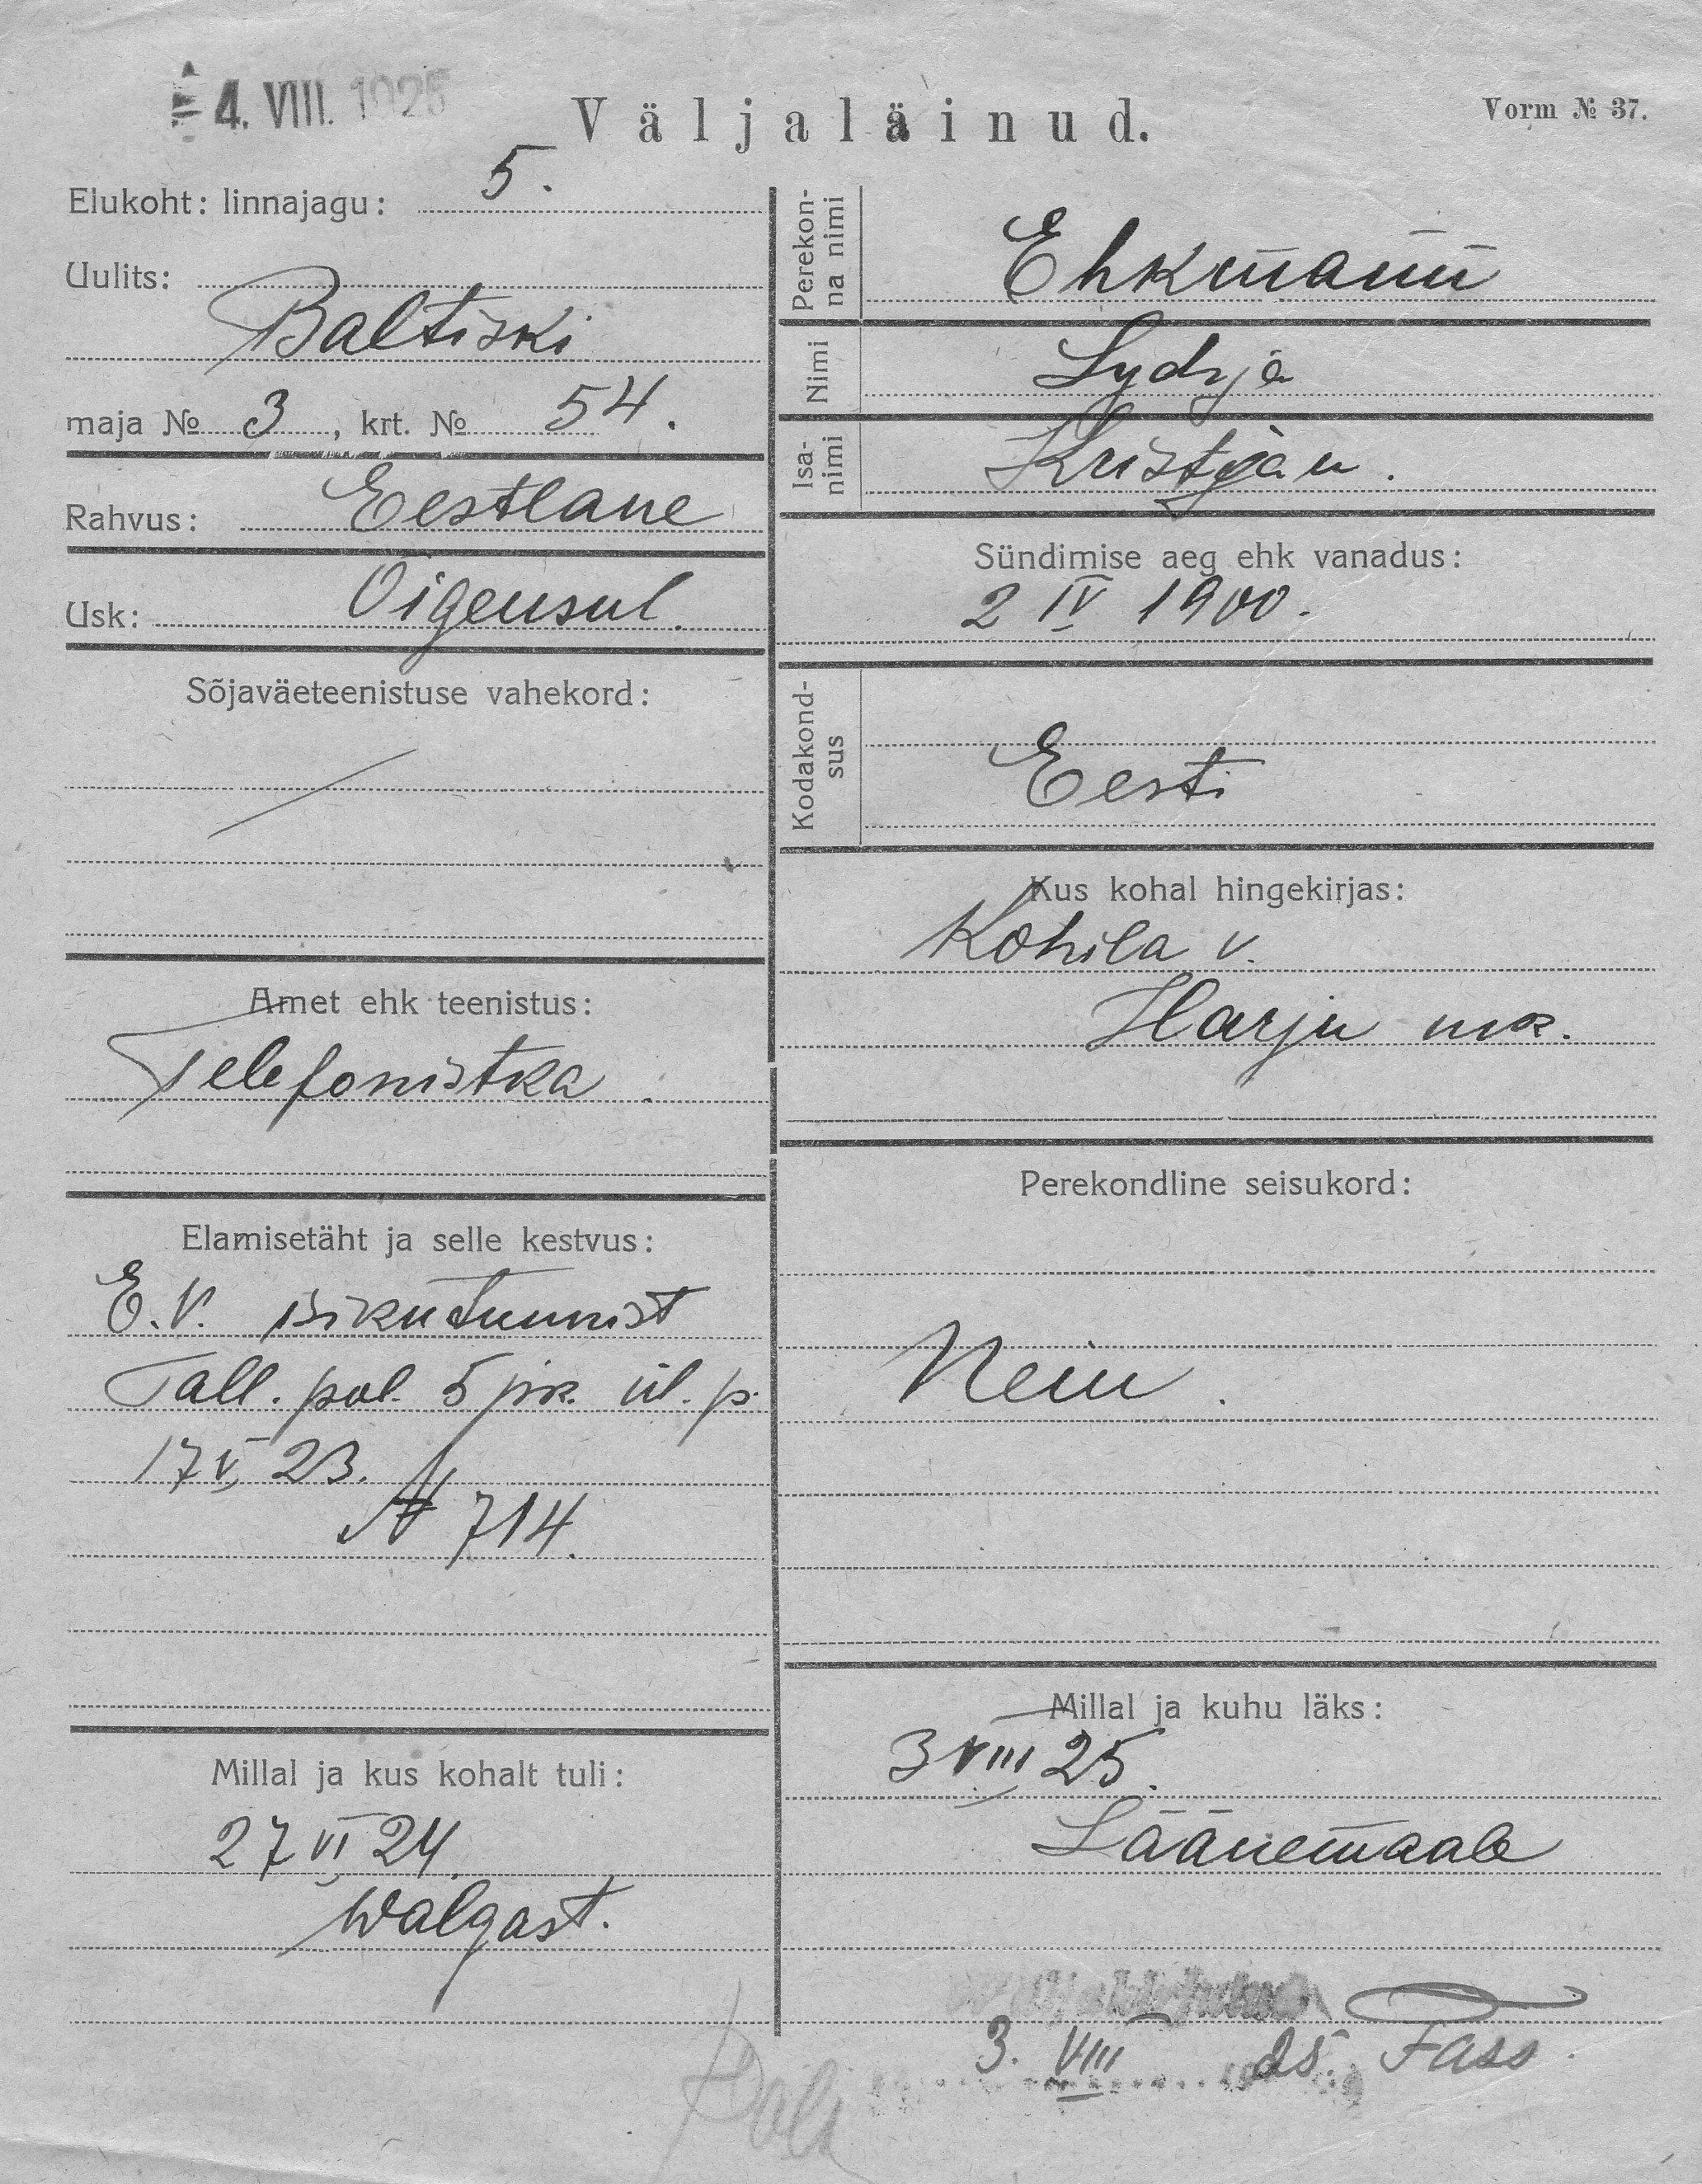 4. VIII. 1925
Väljaläinud.
Vorm № 37.
Elukoht: linnajagu: 5.
Uulits:
Baltiski
maja № 3, krt. № 54.
Rahvus: Eestlane
Usk: Õigeusul.
Sõjaväeteenistuse vahekord:
Amet ehk teenistus:
Telefonistka.
Elamisetäht ja selle kestvus:
E.V. isikutunnist
Tall. pol. 5 jsk. ül. p.
17 V 23.
№ 714.
Millal ja kus kohalt tuli:
27 VI 24.
Walgast.
Perekon-
na nimi
Ehkmann
Nimi
Lydija
Isa-
nimi
Kristjan.
Sündimise aeg ehk vanadus:
2 IV 1900.
Kodakond-
sus
Eesti
Kus kohal hingekirjas:
Kohila v.
Harju mk.
Perekondline seisukord:
Neiu.
Millal ja kuhu läks:
3 VIII 25.
Läänemaale
3. VIII 25. Fass.